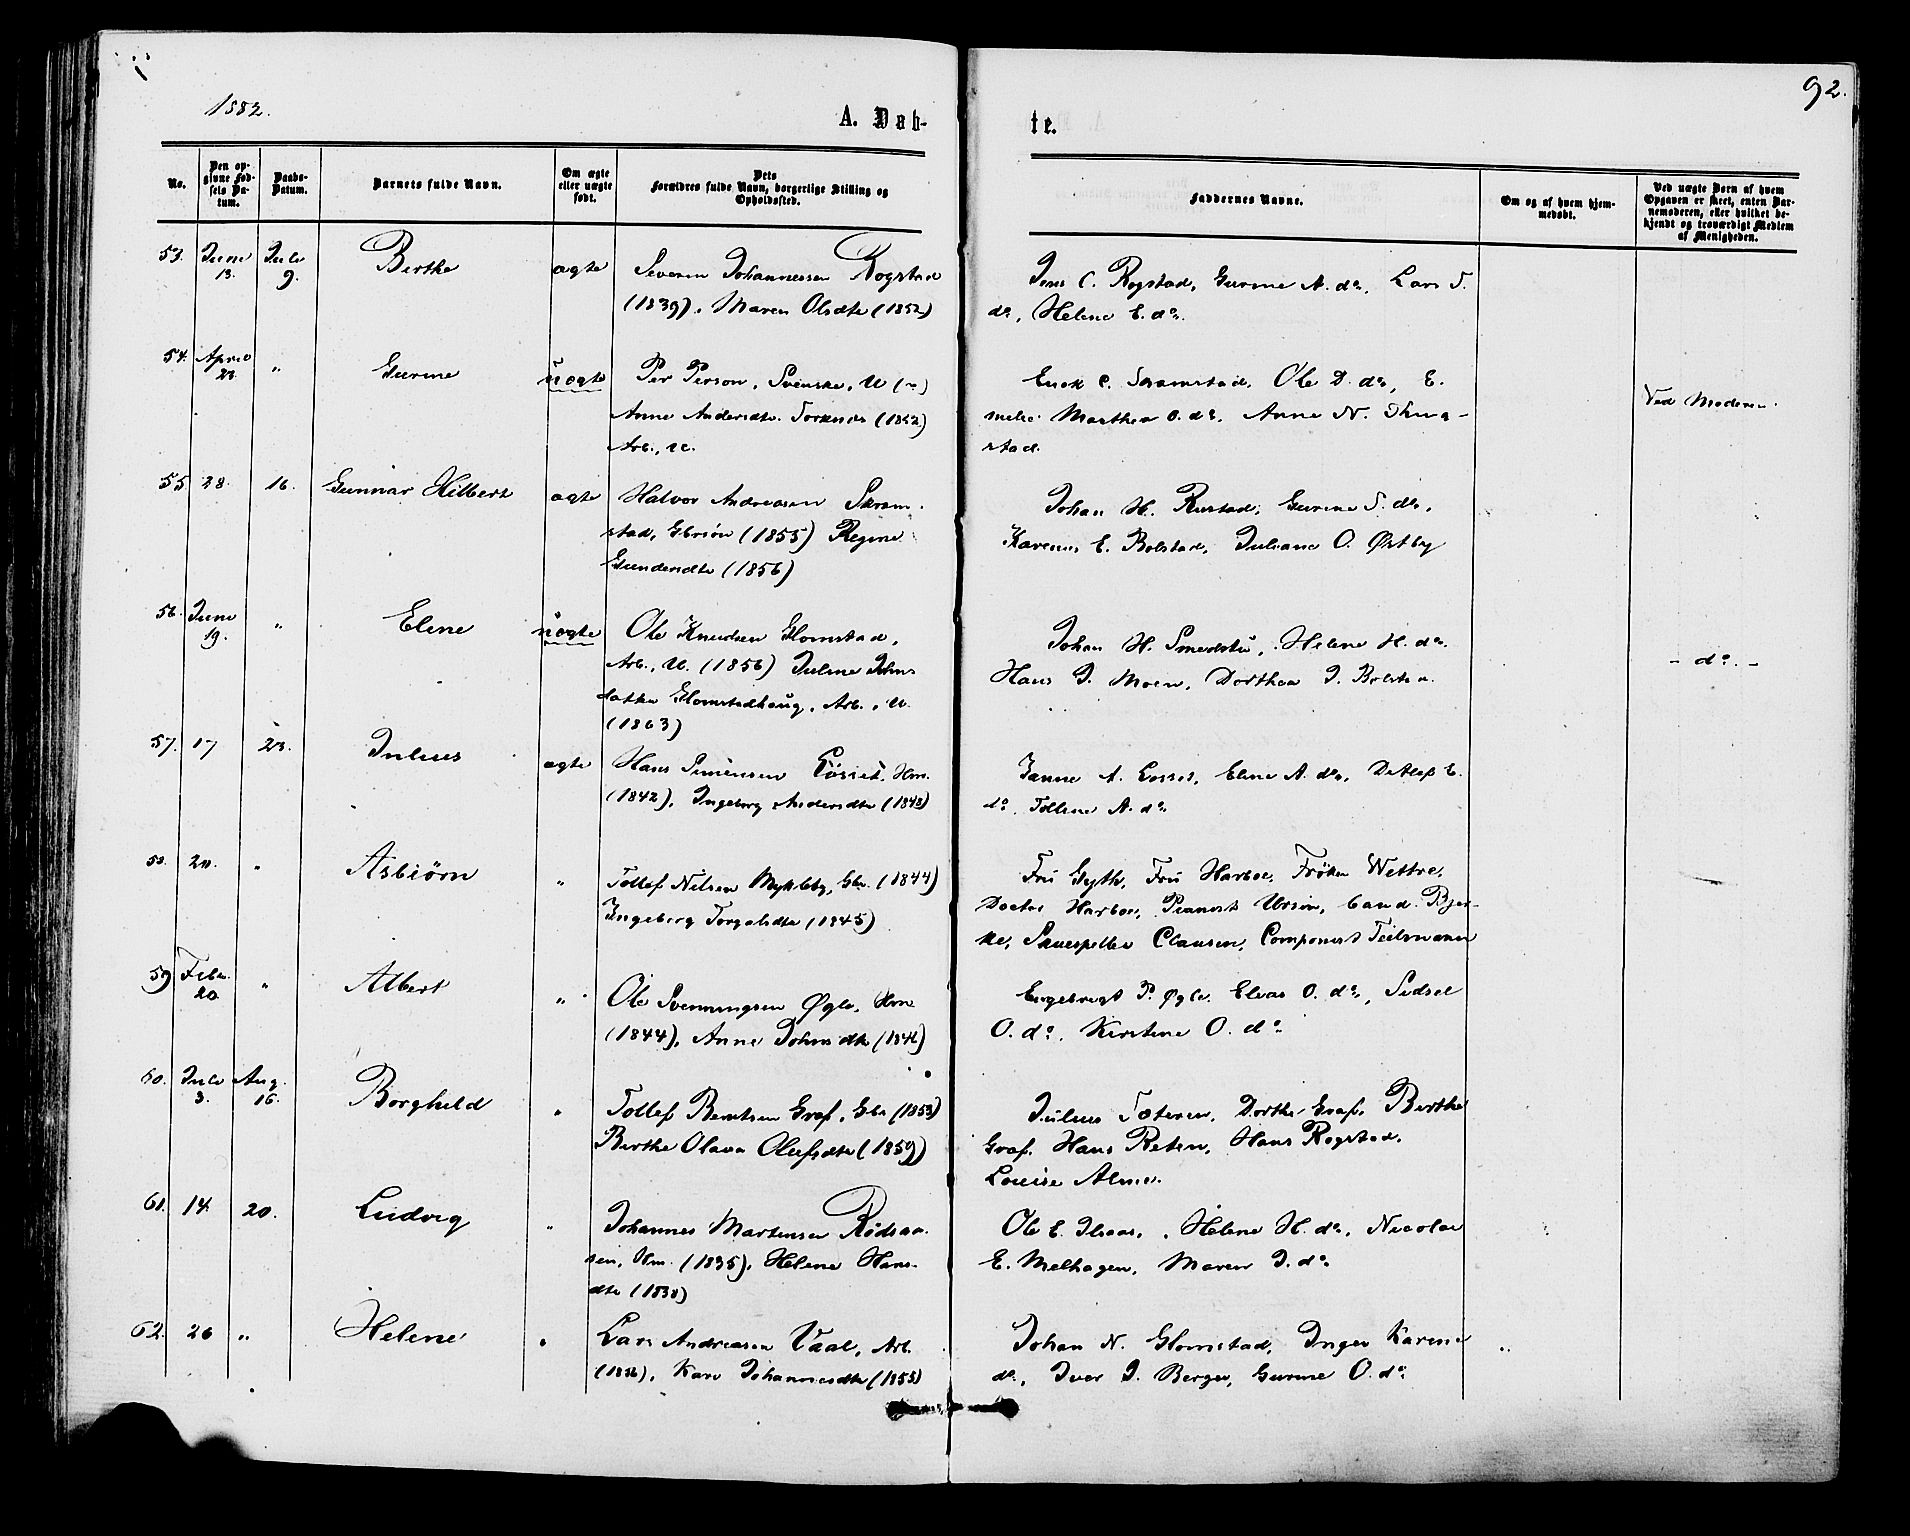 1882.
92.
A. Døb-
te.
No.
Den op-
givne Fød-
sels Da-
tum.
Daabs-
Datum.
Barnets fulde Navn.
Om ægte
eller uægte
født.
Dets
Forældres fulde Navn, borgerlige Stilling og
Opholdssted.
Faddernes Navne.
Om og af hvem hjem-
medøbt.
Ved uægte Børn af hvem
Opgaven er skeet, enten Bar-
nemoderen, eller hvilket be-
kjendt og troværdigt Medlem
af Menigheden.
53. Juni 13. Juli 9. Berthe ægte Severin Johannessen Rogstad
(1839), Maren Olsdtr (1852)
Jens C. Rogstad, Gurine A. do, Lars
do, Helene E. do.
54. April 23. " Gurine uægte Per Person, Svenske, U (")
Anne Andersdtr (1852)
Arb., U.
C. Skramstad, Ole D. do, E-
melie Marthea O. do, Anne N.
stad.
Ved Moderen.
55. 28. 16. Gunnar Hilbert ægte Halvor Andreasen Skram-
stad, Gbrsøn (1855) Regine
Gundersdtr (1856)
Johan H. Rustad, Gurine S. do,
Karenus E. Bolstad, Juliane O. Østby
56. Juni 19. " Eline uægte Ole Knudsen Glomstad,
Arb., U. (1856) Juline Johns-
datter Glomstadhaug, Arb., U.
(1863)
Johan H. Smedstu, Helene H. do.
Hans J. Moen, Dorthea J. Bolstad.
- do. -
57. 17 23. Julius ægte Hans Simensen Hm.
(1842), Ingeborg Andersdtr (1848)
Janne A. Eline A. do, Detlef E.
do, Tolline A. do
58. " Asbiørn " Tollef Nilsen Mykleby, Gbr. (1844)
Ingeborg Torgalsdtr (1845)
Fru Gyth, Fru Harboe, Frøken Wettre,
Doctor Harboe, Pianist Ursin, Cand. Bjer-
ke, Skuespiller Clausen, Componist Teilmann
59. Febr. 20. " Albert " Ole Svenningsen Øgle, Hm
(1844), Anne Johnsdtr
Engebregt P. Øgle, Elias O. do, Sidsel
O. do, Kirstine O. do
60. Juli 3. Aug. 16. Borghild " Tollef Berntsen Graf, Gbr (1853)
Berthe Olava Olufsdtr (1859)
Julius Dorthe Graf, Berthe
Graf, Hans Hans Rogstad,
Louise Alme.
61. 14. 20. Ludvig " Johannes Martinsen Rødsaa-
sen, Hm. (1835), Helene Hans-
dtr (1838)
Ole E. Helene H. do, Nicolai
E. Melhagen, Maren J. do
62. 26 " Helene " Lars Andreasen Vaal, Arb.
Kari Johannesdtr (1853)
Johan N. Glomstad, Inger Karine
do, Iver J. Berger, Gurine O. do